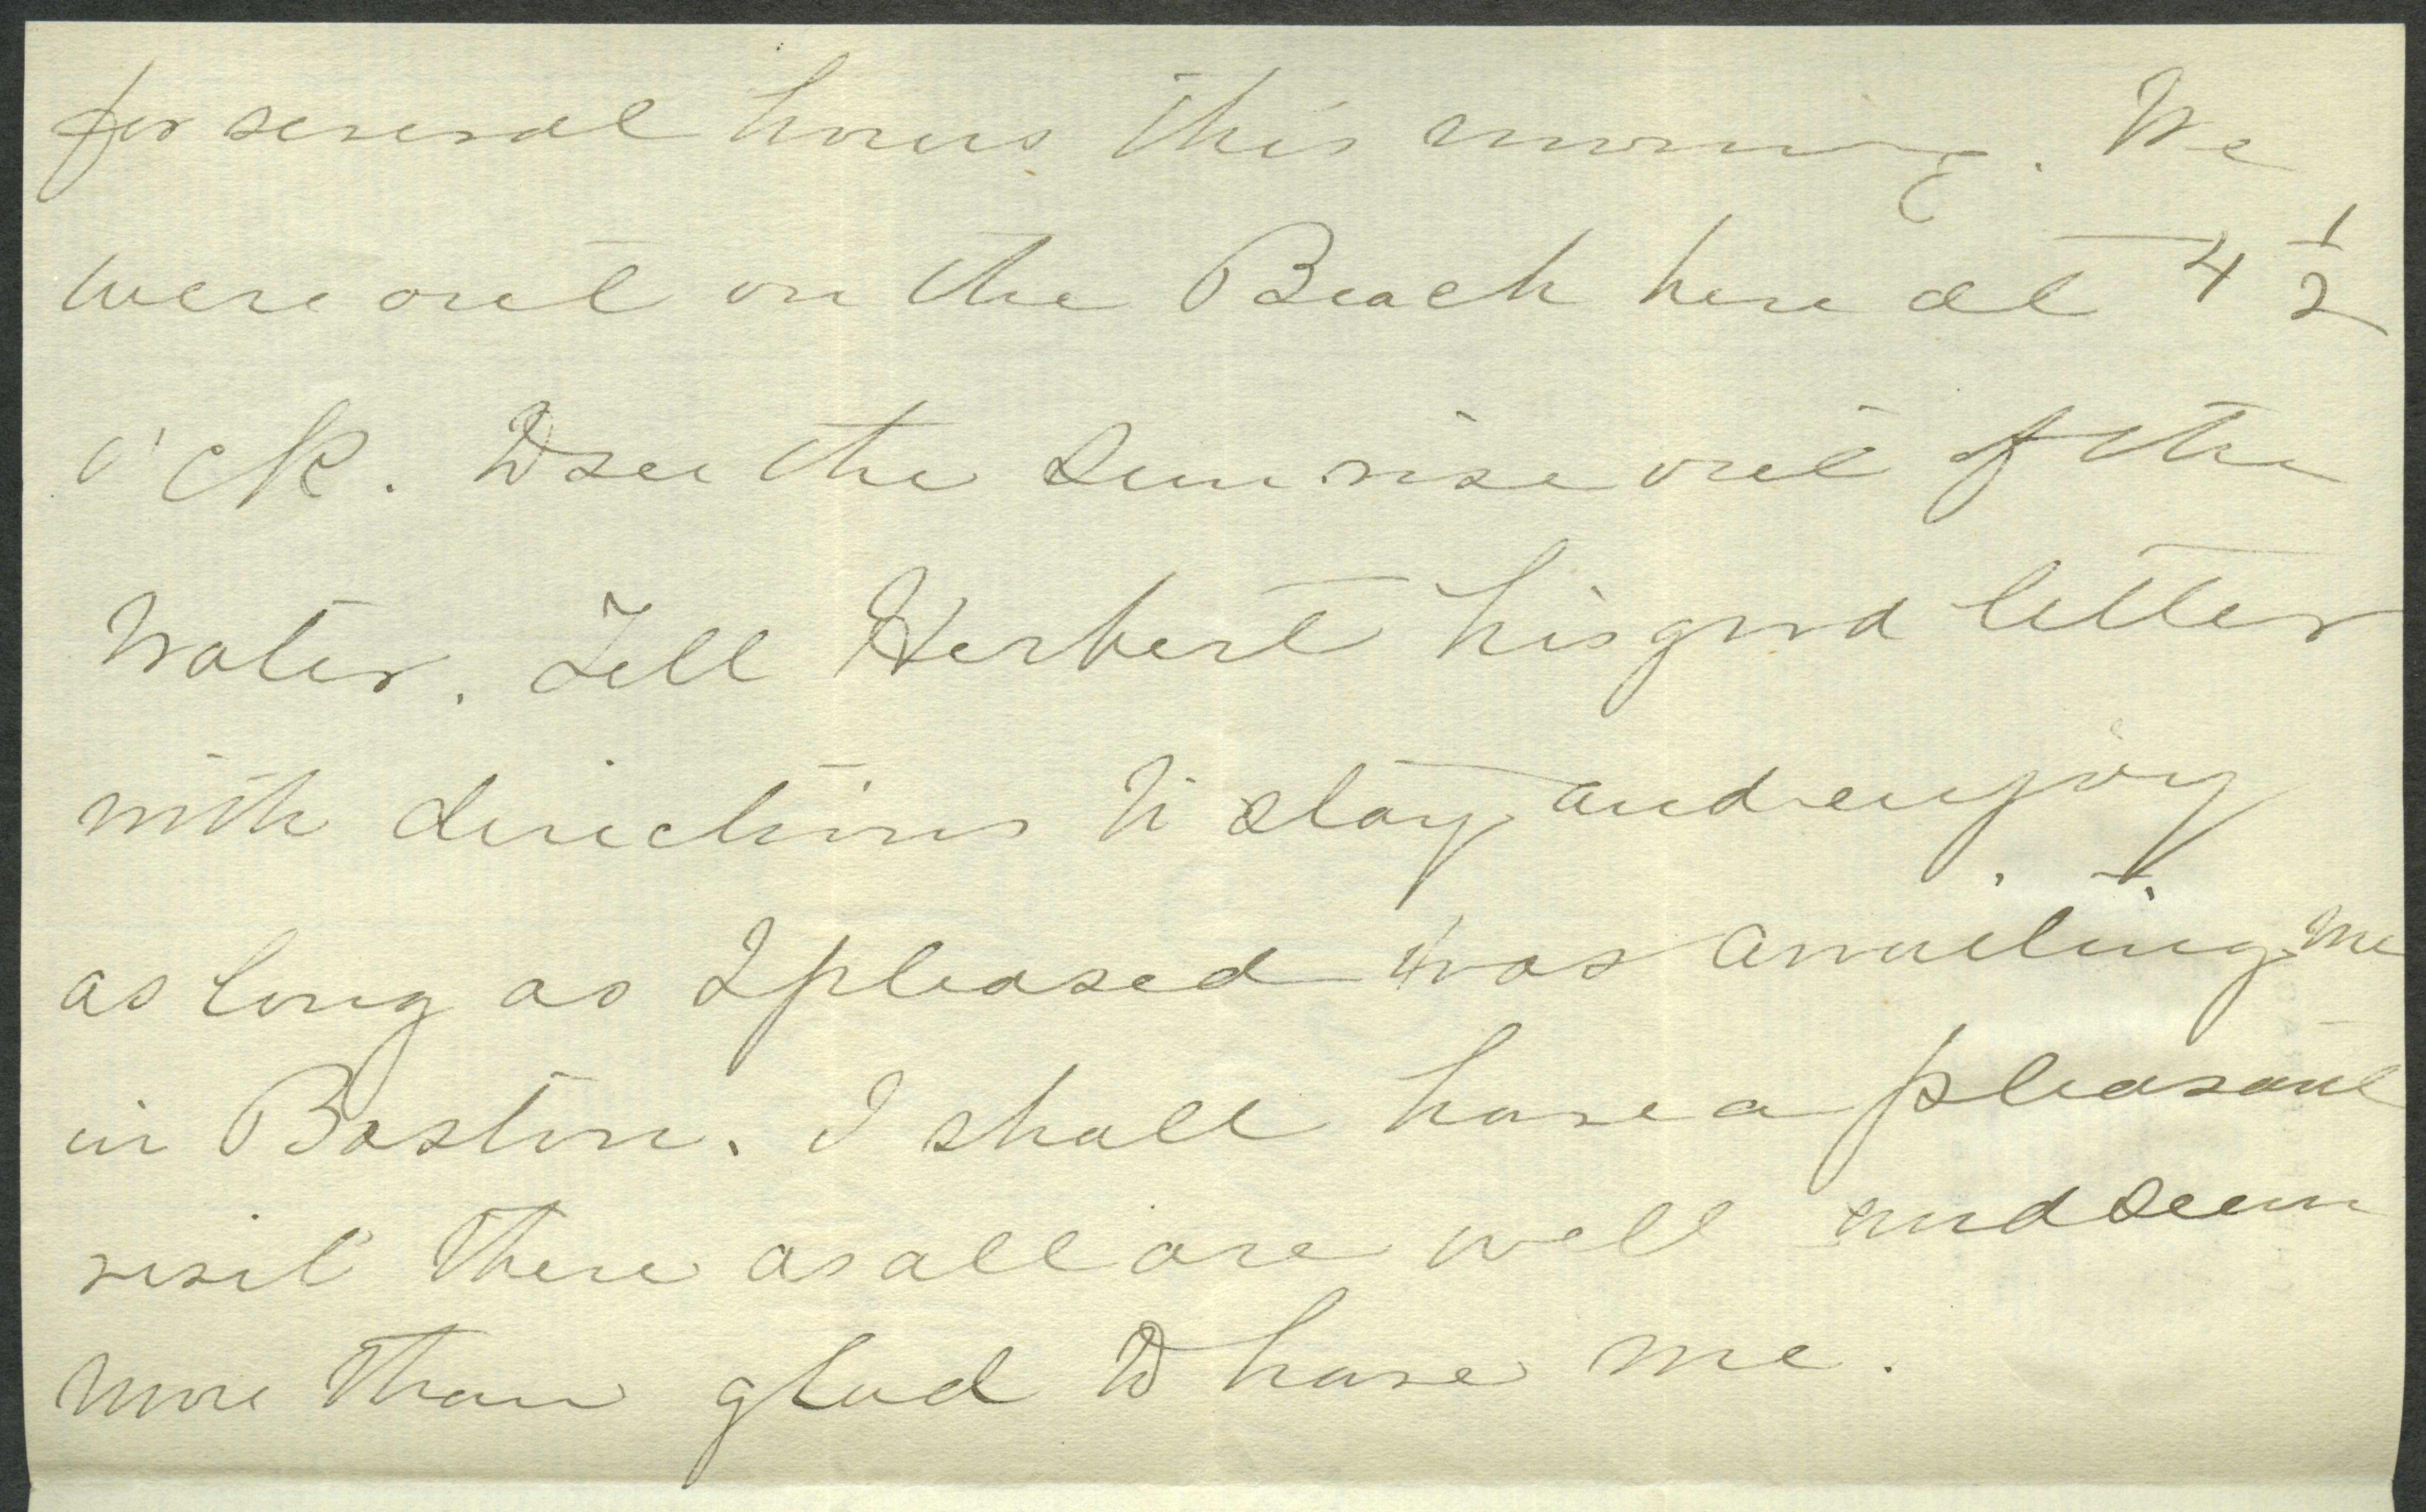 for several hours this morning. We
were out on the Beach here at 4 1/2
o'ck. to see the Sun rise out of the
Water. Tell Herbert his good letter
with directions to stay and enjoy
as long as I pleased was awaiting me
in Boston. I shall have a pleasant
visit there as all are well and seem
more than glad to have me.